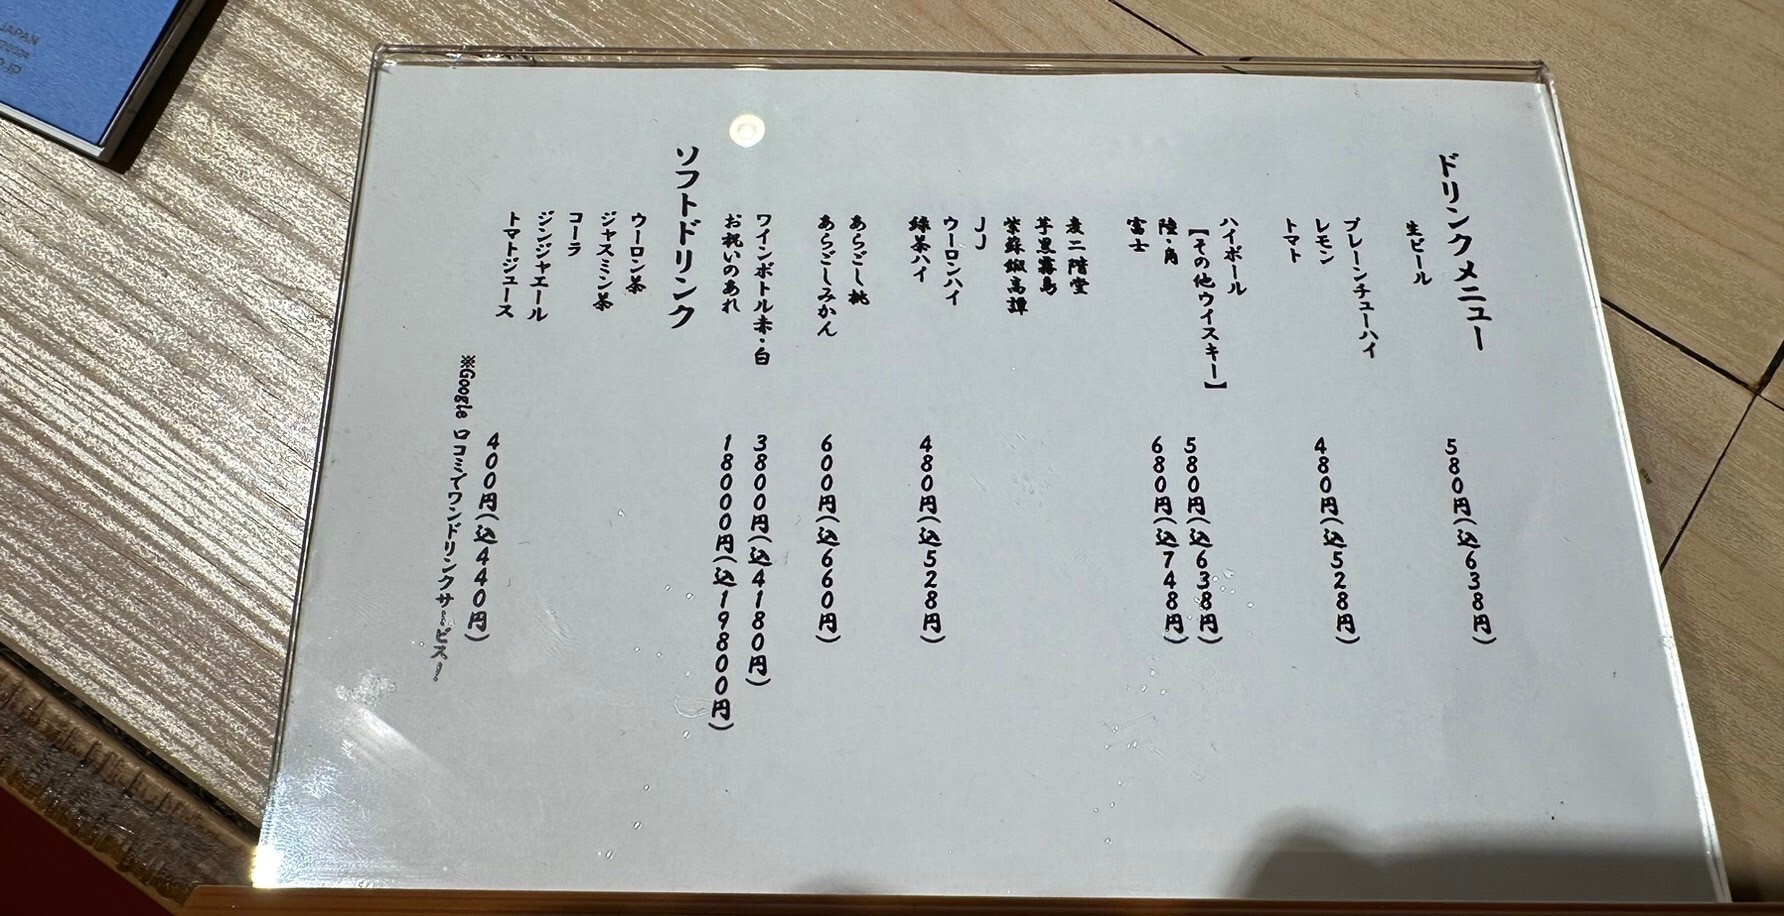 ドリンクメニュー
生ビール 580円(込638円)
プレーンチューハイ
レモン 480円(込528円)
トマト
ハイボール
【その他ウイスキー】
陸・角 580円(込638円)
富士 680円(込748円)
麦二階堂
芋黒霧島
紫蘇鍛高譚
JJ
ウーロンハイ
緑茶ハイ 480円(込528円)
あらごし桃
あらごしみかん 600円(込660円)
ワインボトル赤・白 3800円(込4180円)
お祝いのあれ 18000円(込19800円)
ソフトドリンク
ウーロン茶
ジャスミン茶
コーラ
ジンジャエール
トマトジュース 400円(込440円)
※Google 口コミでワンドリンクサービス
JAPAN